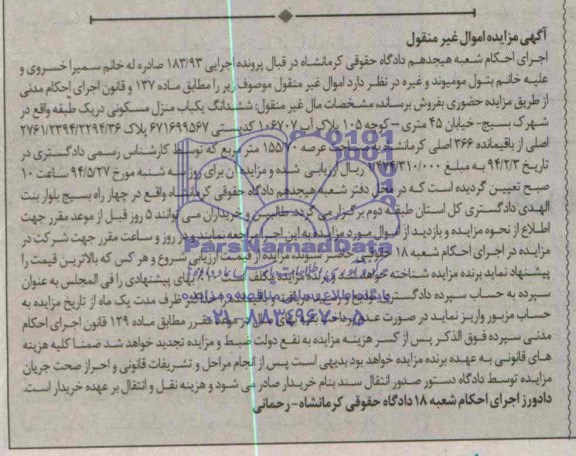 آگهی مزایده اموال غیر منقول
اجرای احکام شعبه هیجدهم دادگاه حقوقی کرمانشاه در قبال پرونده اجرایی ۱۸۳/۹۳ صادره له خانم سمیرا خسروی و
علیه خانم بتول مومیوند و غیره در نظر دارد اموال غیر منقول موصوف زیر را مطابق ماده ۱۳۷ و قانون اجرای احکام مدنی
از طریق مزایده حضوری بفروش برساند، مشخصات مال غیر منقول: ششدانگ یکباب منزل مسکونی دریک طبقه واقع در
شهرک بسیج- خیابان ۴۵ متری – کوچه ۱۰۵ پلاک آب ۱۰۶۷۰۷ کدپستی ۶۷۱۶۹۹۵۶۷ پلاک ۲۷۶۱/۲۳۹۴/۲۲۹۴/۳۶
اصلی از باقیمانده ۳۶۶ اصلی کرمانشاه به مساحت عرصه ۱۵۵/۷۰ متر مربع که توسط کارشناس رسمی دادگستری در
تاریخ ۹۴/۲/۳ به مبلغ ۲/۴۷۴/۳۱۰/۰۰۰ ریال ارزیابی شده و مزایده آن برای روز سه شنبه مورخ ۹۴/۵/۲۷ ساعت ۱۰
صبح تعیین گردیده است که در محل دفتر شعبه هیجدهم دادگاه حقوقی کرمانشاه واقع در چهار راه بسیج بلوار بنت
الهدی دادگستری کل استان طبقه دوم برگزار می گردد. طالبین و خریداران می توانند ۵ روز قبل از موعد مقرر جهت
اطلاع از نحوه مزایده و بازدید از اموال مورد مزایده به این اجرا مراجعه نمایند و در روز و ساعت مقرر جهت شرکت در
مزایده در اجرای احکام شعبه ۱۸ حقوقی حاضر شوند، مزایده از قیمت ارزیابی شروع و هر کس که بالاترین قیمت را
پیشنهاد نماید برنده مزایده شناخته خواهد شد و برنده مزایده مکلف است ۱۰٪ بهای پیشنهادی را فی المجلس به عنوان
سپرده به حساب سپرده دادگستری ظرف مدت یک ماه از تاریخ مزایده به
حساب مزبور واریز نماید در صورت عدم پرداخت بقیه بهای اموال در موعد مقرر مطابق ماده ۱۲۹ قانون اجرای احکام
مدنی سپرده فوق الذکر پس از کسر هزینه مزایده به نفع دولت ضبط و مزایده تجدید خواهد شد ضمنا کلیه هزینه
های قانونی به عهده برنده مزایده خواهد بود بدیهی است پس از انجام مراحل و تشریفات قانونی و احراز صحت جریان
مزایده توسط دادگاه دستور صدور انتقال سند بنام خریدار صادر می شود و هزینه نقل و انتقال بر عهده خریدار است.
دادورز اجرای احکام شعبه ۱۸ دادگاه حقوقی کرمانشاه – رحمانی
ParsNamadData
پایگاه اطلاع رسانی مناقصه و مزایده
۰۲۱-۸۸۳۴۹۶۷۰-۵